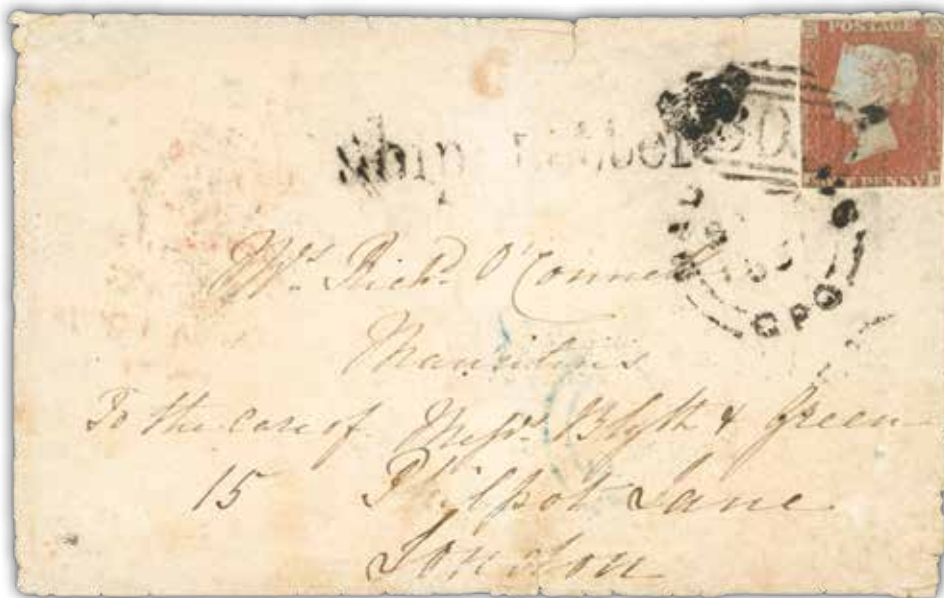 POSTAGE
Ship Letter
PENNY
GPO
Mrs. Richd. O'Connell
Mauritius
To the care of Messrs. Blyth & Green
15 Philpot Lane
London